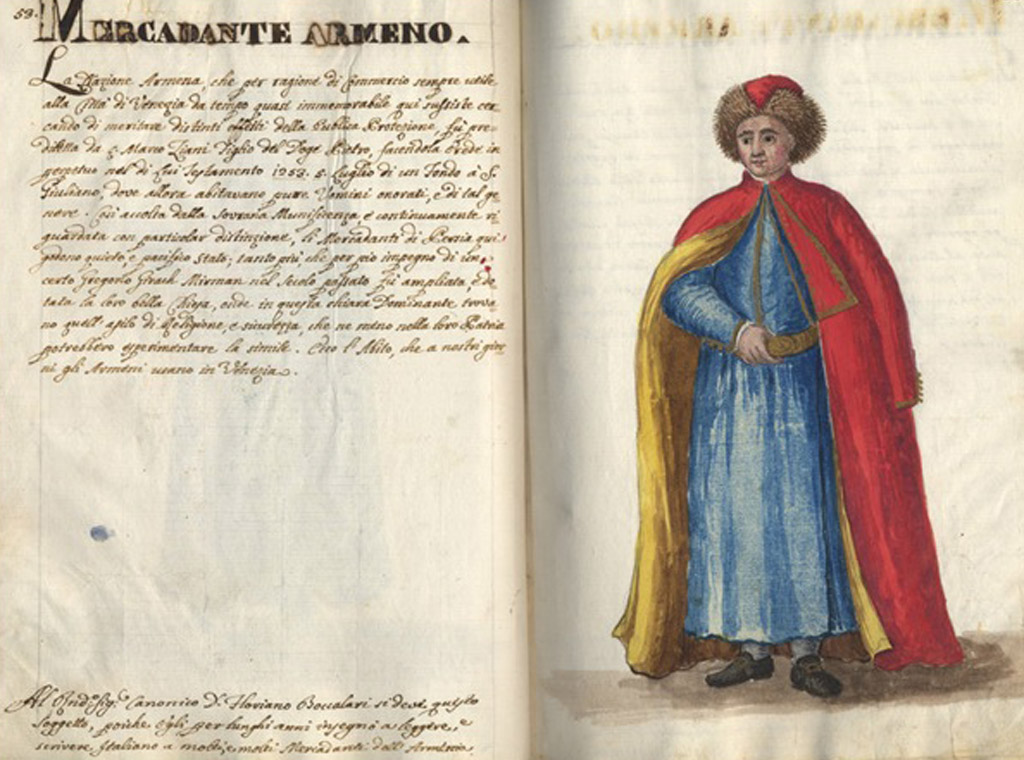 53.
MERCADANTE ARMENO.
La Nazione Armena, che per ragione di Commercio sempre utile
alla Città di Venezia da tempo quasi immemorabile qui sussiste cer
cando di meritare distinti effetti della Publica Protezione, fù pre-
diletta da S. Marco Ziani Figlio del Doge Pietro, facendola Erede in
perpetuo nel di Lui Testamento 1253. 5. Luglio di un Fondo à S.
Giuliano, dove allora abitavano pure Uomini onorati, e di tal ge
nere. Così accolta dalla Sovrana Munificenza e continuamente ri
guardata con particolar distinzione, li Mercadanti di Persia qui
godono quieto, e pacifico Stato; tanto più che per pio impegno di un
certo Gregorio Mirman nel Secolo passato fù ampliata, e do
tata la loro bella Chiesa, onde in questa chiara Dominante trova
no quell'asilo di Religione, e sicurezza, che ne meno nella loro Patria
potrebbero esperimentare la simile. Ecco l'Abito, che a nostri gior
ni gli Armeni usano in Venezia.
Al Sig.r Canonico D. Floriano Boccolari si deve questo
Soggetto, poiche egli per lunghi anni insegnò a leggere, e
scrivere Italiano a molti, e molti Mercadanti dell'Armenia.